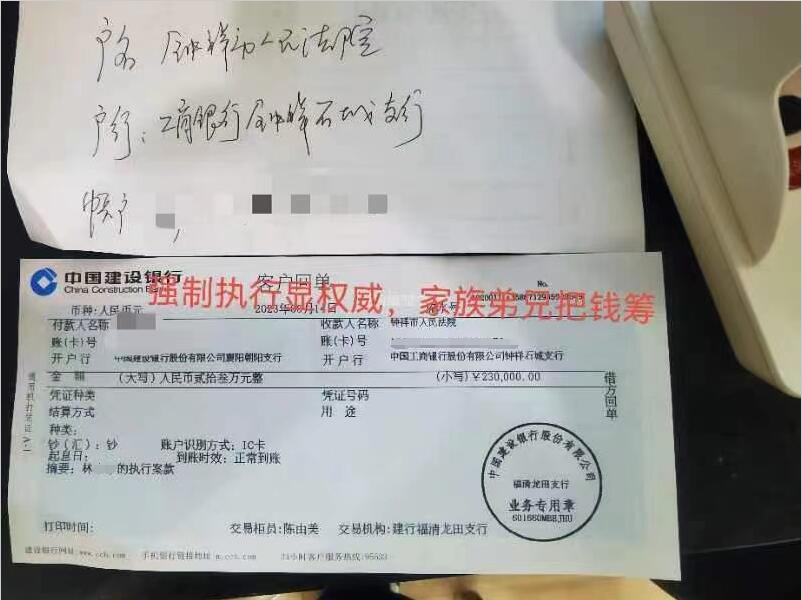 户名 钟祥市人民法院
户行：工商银行钟祥石城支行
帐户
中国建设银行
China Construction Bank
客户回单
No.
强制执行显权威，家族弟兄把钱筹
币种：人民币元
付款人名称
收款人名称 钟祥市人民法院
账(卡)号
账(卡)号
开户行 中国建设银行股份有限公司襄阳朝阳支行
开户行 中国工商银行股份有限公司钟祥石城支行
金额 (大写)人民币贰拾叁万元整 (小写)￥230,000.00
借方回单
凭证种类 凭证号码
结算方式 用途
种类：
钞(汇)：钞 账户识别方式：IC卡
起息日： 到账时效：正常到账
摘要：林 的执行案款
中国建设银行股份有限公司
福清龙田支行
业务专用章
打印时间： 交易柜员：陈由美 交易机构：建行福清龙田支行
建设银行网址：www.ccb.com 手机银行链接地址：m.ccb.com 24小时客户服务热线：95533